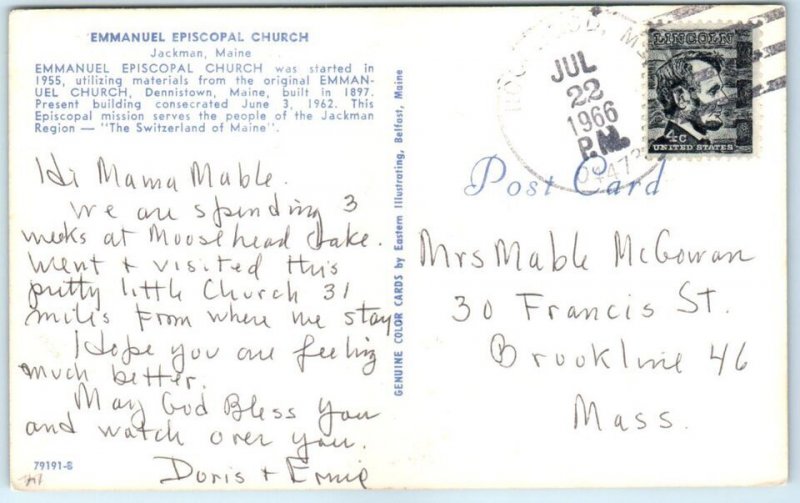 EMMANUEL EPISCOPAL CHURCH
Jackman, Maine
EMMANUEL EPISCOPAL CHURCH was started in
1955, utilizing materials from the original EMMAN-
UEL CHURCH, Dennistown, Maine, built in 1897.
Present building consecrated June 3, 1962. This
Episcopal mission serves the people of the Jackman
Region — "The Switzerland of Maine".
Hi Mama Mable.
We are spending 3
weeks at Moosehead Lake.
Went + visited this
pretty little Church 31
miles from where we stay
Hope you are feeling
much better.
May God Bless you
and watch over you.
Doris + Ernie
79191-B
GENUINE COLOR CARDS by Eastern Illustrating, Belfast, Maine
JUL
22
1966
P.M.
LINCOLN
4c
UNITED STATES
Post Card
Mrs Mable McGowan
30 Francis St.
Brookline 46
Mass.